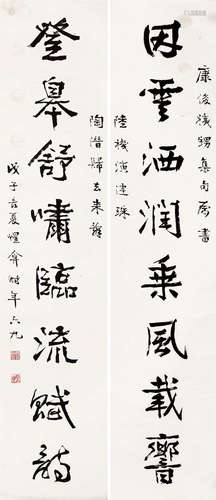 康
甥集句屬書
因雲洒潤乘風載響
陸機演連珠
陶潛歸去來辭
登皋舒嘯臨流賦詩
戊子長夏
時年六九